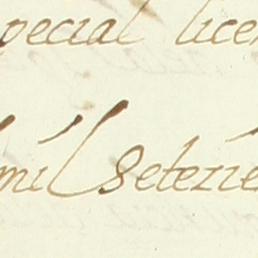 special licen
mil Setezie